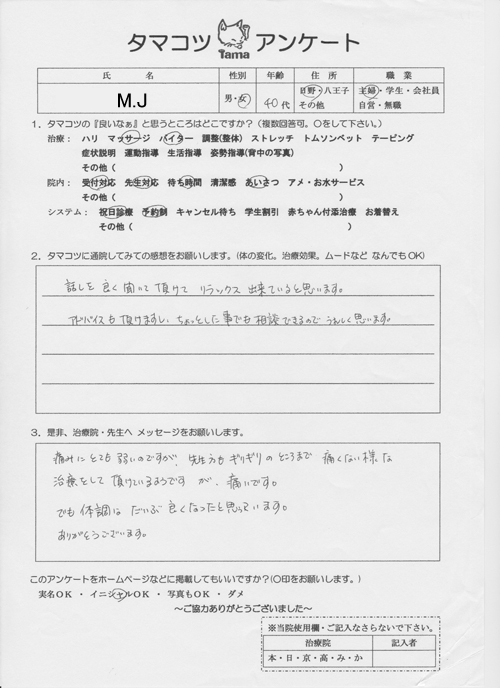 タマコツ Tama アンケート
氏 名 性別 年齢 住 所 職 業
M.J 男・女 40代 日野・八王子 その他 主婦・学生・会社員 自営・無職
1．タマコツの『良いなぁ』と思うところはどこですか？（複数回答可。〇をして下さい。）
治療： ハリ マッサージ バイター 調整(整体) ストレッチ トムソンベット テーピング
症状説明 運動指導 生活指導 姿勢指導(背中の写真)
その他（ ）
院内： 受付対応 先生対応 待ち時間 清潔感 あいさつ アメ・お水サービス
その他（ ）
システム： 祝日診療 予約制 キャンセル待ち 学生割引 赤ちゃん付添治療 お着替え
その他（ ）
2．タマコツに通院してみての感想をお願いします。(体の変化。治療効果。ムードなど なんでもOK)
話しを良く聞いて頂けて リラックス出来ていると思います。
アドバイスも頂けますし、ちょっとした事でも相談できるので うれしく思います。
3．是非、治療院・先生へ メッセージをお願いします。
痛みにとても弱いのですが、先生方もギリギリのところまで痛くない様な
治療をして頂けているようですが、痛いです。
でも体調はだいぶ良くなったと思っています。
ありがとうございます。
このアンケートをホームページなどに掲載してもいいですか？(〇印をお願いします。)
実名OK ・ イニシャルOK ・ 写真もOK ・ ダメ
～ご協力ありがとうございました～
※当院使用欄・ご記入なさらないで下さい。
治療院 記入者
本・日・京・高・み・か